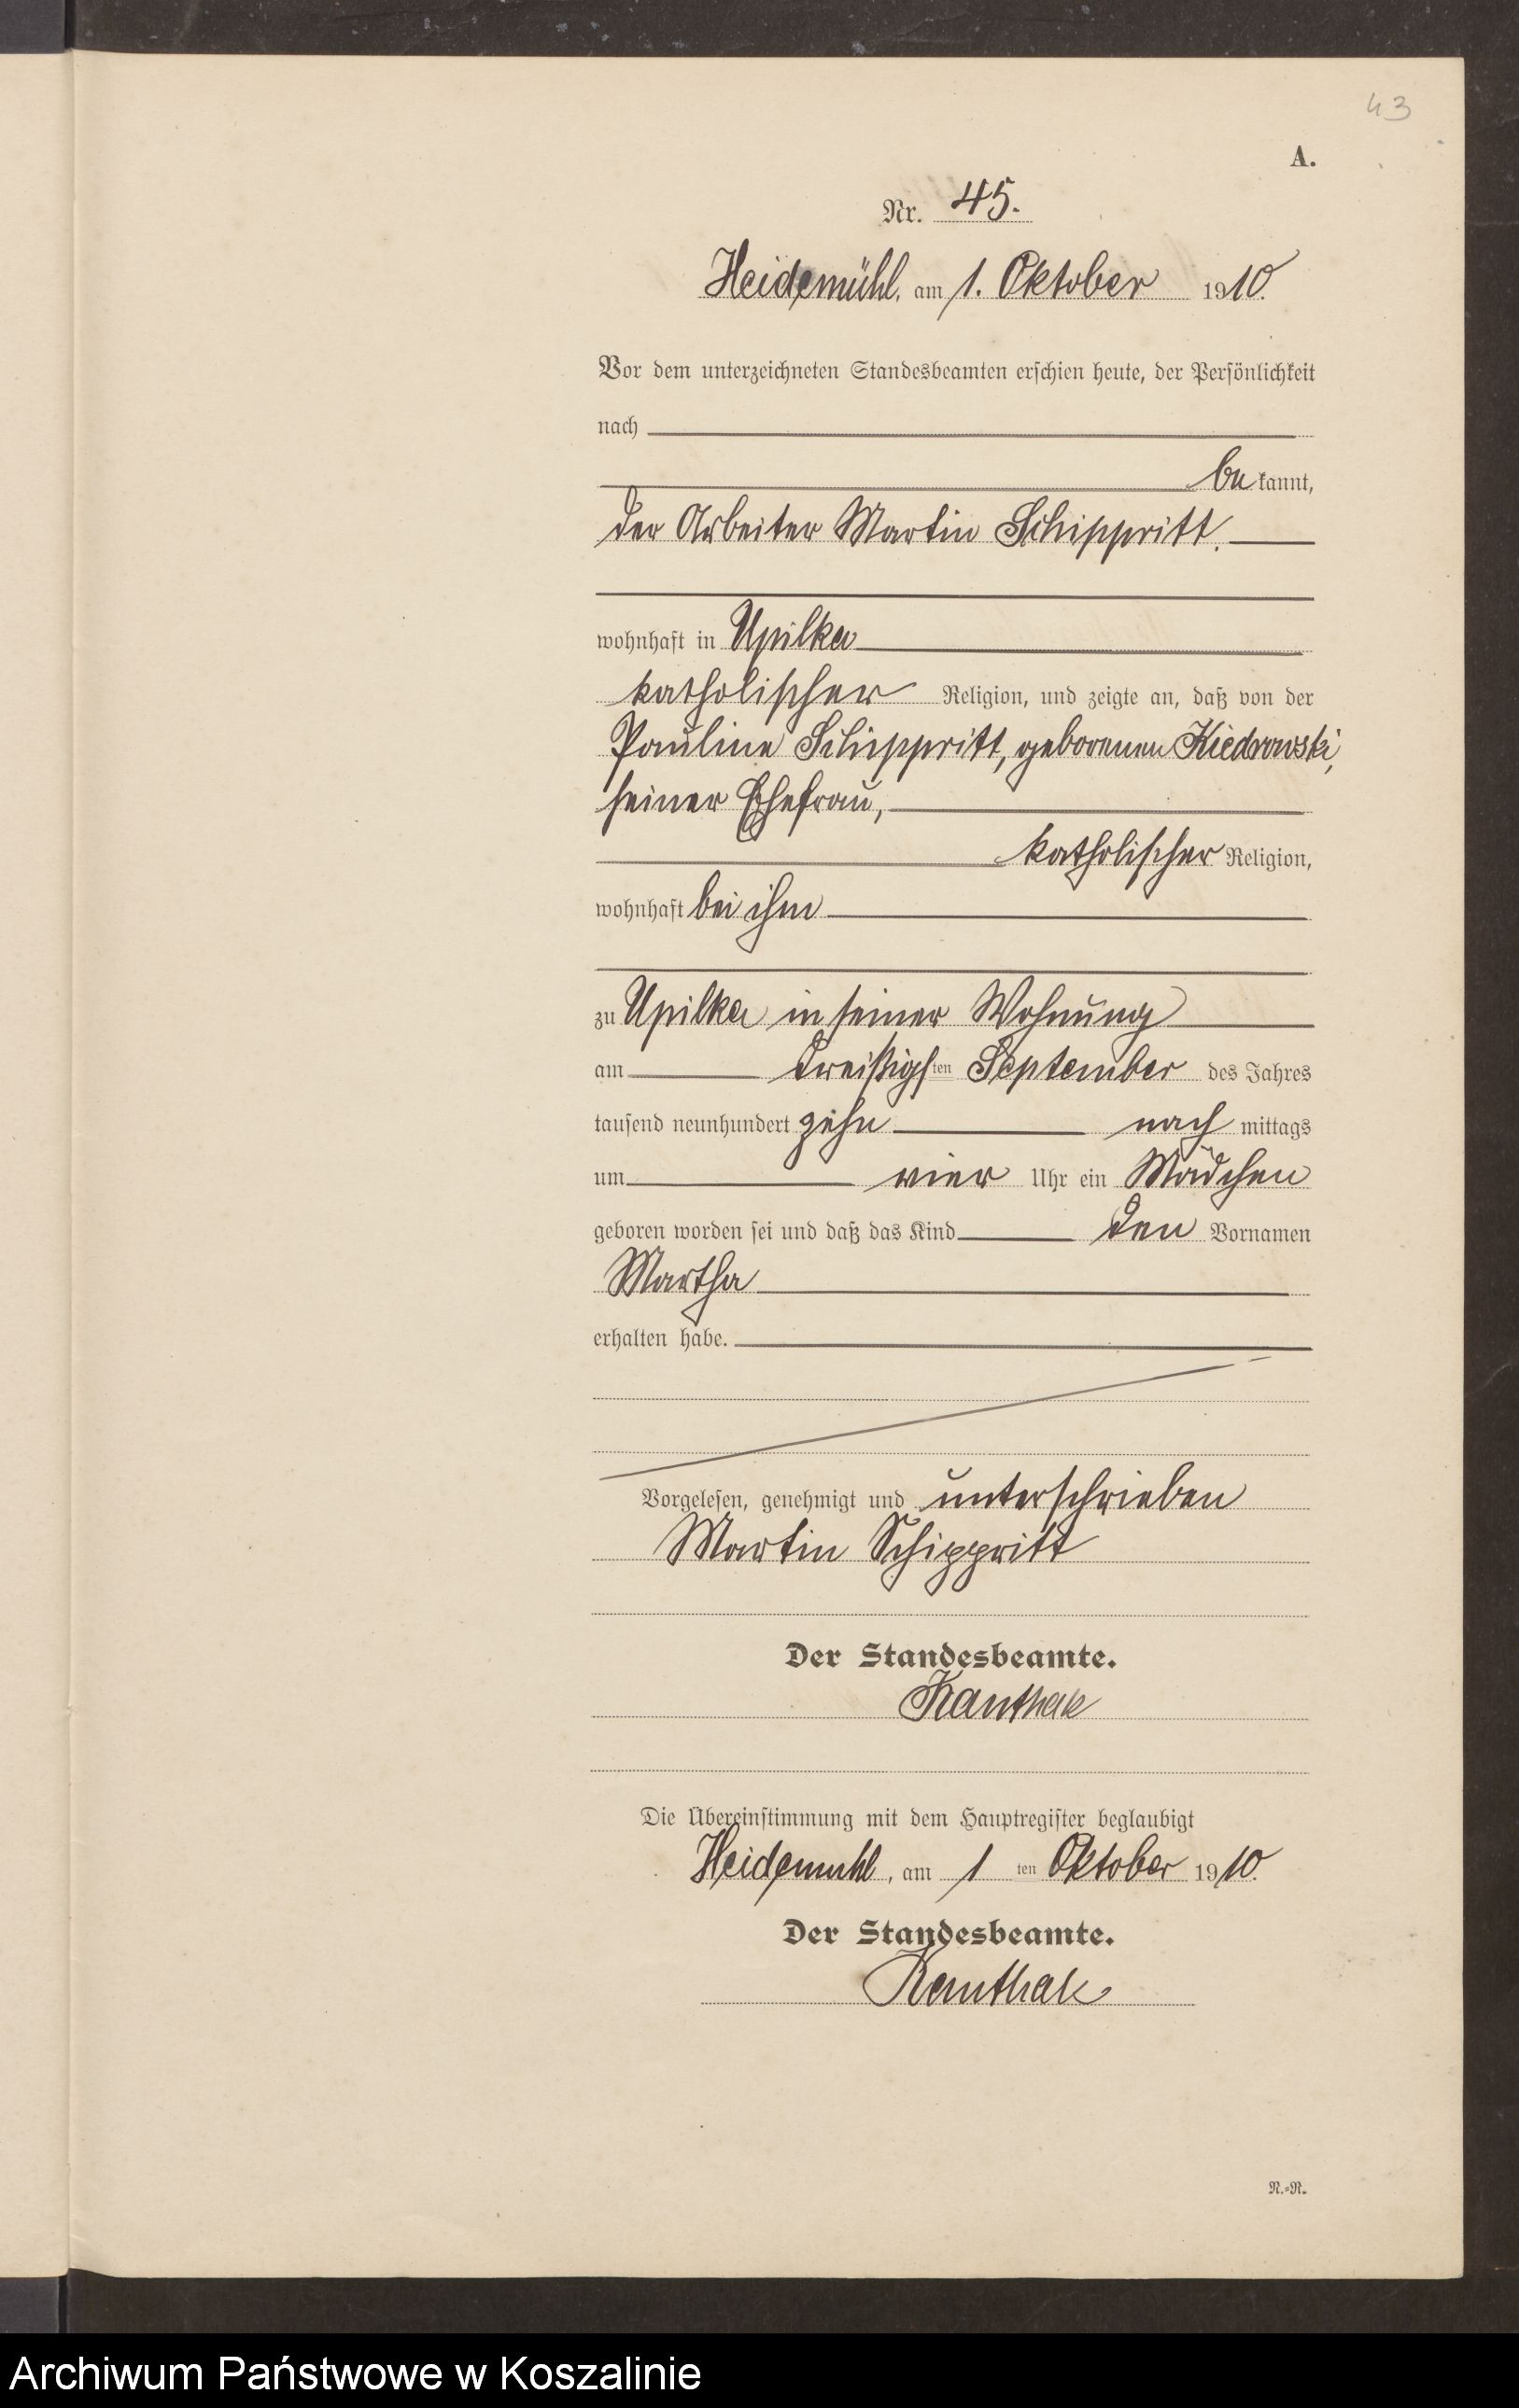 43
A.
Nr. 45.
Heidemühl, am 1. Oktober 1910.
Vor dem unterzeichneten Standesbeamten erschien heute, der Persönlichkeit
nach
bekannt,
der Arbeiter Martin Schippritt.
wohnhaft in Upilka
katholischer Religion, und zeigte an, daß von der
Pauline Schippritt, geborenen Kiedrowski,
seiner Ehefrau,
katholischer Religion,
wohnhaft bei ihm
zu Upilka in seiner Wohnung
am dreißigsten September des Jahres
tausend neunhundert zehn nachmittags
um vier Uhr ein Mädchen
geboren worden sei und daß das Kind den Vornamen
Martha
erhalten habe.
Vorgelesen, genehmigt und unterschrieben
Martin Schippritt
Der Standesbeamte.
Kanthak
Die Übereinstimmung mit dem Hauptregister beglaubigt
Heidemühl, am 1ten Oktober 1910.
Der Standesbeamte.
Kanthak
N.=N.
Archiwum Państwowe w Koszalinie